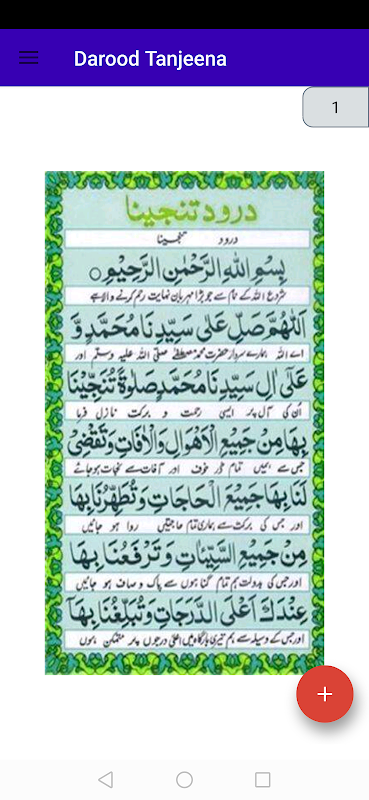 Darood Tanjeena
1
درود تنجینا
درود تنجینا
بِسْمِ اللهِ الرَّحْمٰنِ الرَّحِيْمِ
شروع اللہ کے نام سے جو بڑا مہربان نہایت رحم کرنے والا ہے
اَللّٰهُمَّ صَلِّ عَلٰى سَيِّدِنَا مُحَمَّدٍ وَّ
اے اللہ ہمارے سردار حضرت محمد مصطفےٰ صلی اللہ علیہ وسلم اور
عَلٰٓى اٰلِ سَيِّدِنَا مُحَمَّدٍ صَلٰوةً تُنَجِّيْنَا
ان کی آل پر ایسی رحمت و برکت نازل فرما
بِهَا مِنْ جَمِيْعِ الْاَهْوَالِ وَالْاٰفَاتِ وَتَقْضِىْ
جس سے ہمیں تمام ڈر خوف اور آفات سے نجات ہو جائے
لَنَا بِهَا جَمِيْعَ الْحَاجَاتِ وَتُطَهِّرُنَا بِهَا
اور جس کی برکت سے ہماری تمام حاجتیں روا ہو جائیں
مِنْ جَمِيْعِ السَّيِّئَاتِ وَتَرْفَعُنَا بِهَا
اور جس کی بدولت ہم تمام گناہوں سے پاک و صاف ہو جائیں
عِنْدَكَ اَعْلَى الدَّرَجَاتِ وَتُبَلِّغُنَا بِهَآ
اور جس کے وسیلہ سے ہم تیری بارگاہ میں اعلیٰ درجوں پر متمکن ہوں
+